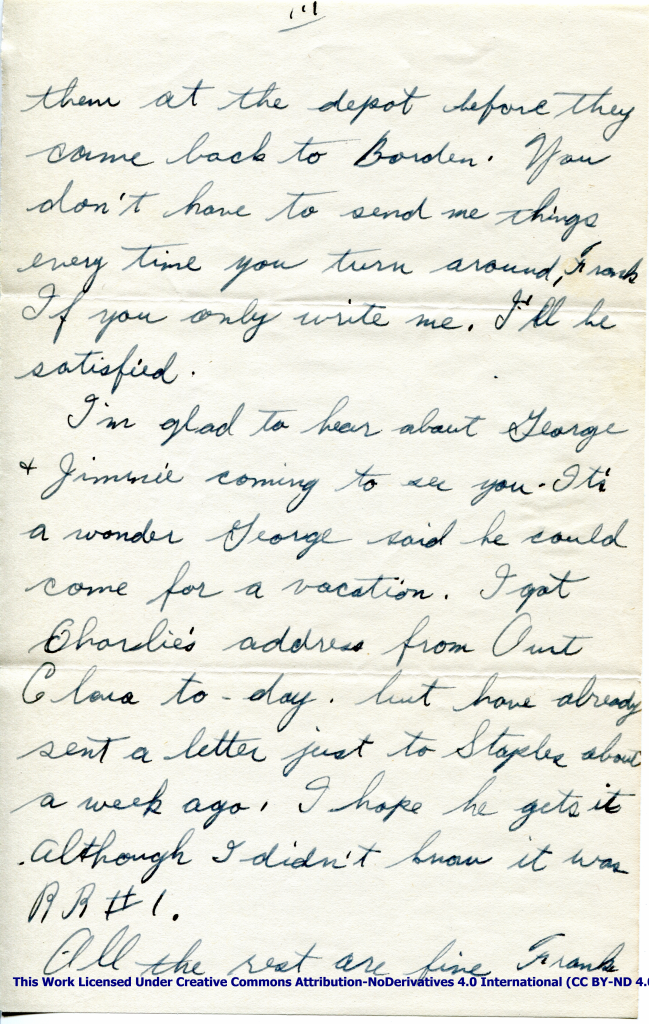 111
them at the depot before they
came back to Borden. You
don't have to send me things
every time you turn around, Frank
If you only write me. I'll be
satisfied.
I'm glad to hear about George
+ Jimmie coming to see you. It's
a wonder George said he could
come for a vacation. I got
Charlie's address from Aunt
Clara to-day. but have already
sent a letter just to Staples about
a week ago. I hope he gets it
Although I didn't know it was
RR #1.
All the rest are fine Frank
This Work Licensed Under Creative Commons Attribution-NoDerivatives 4.0 International (CC BY-ND 4.0